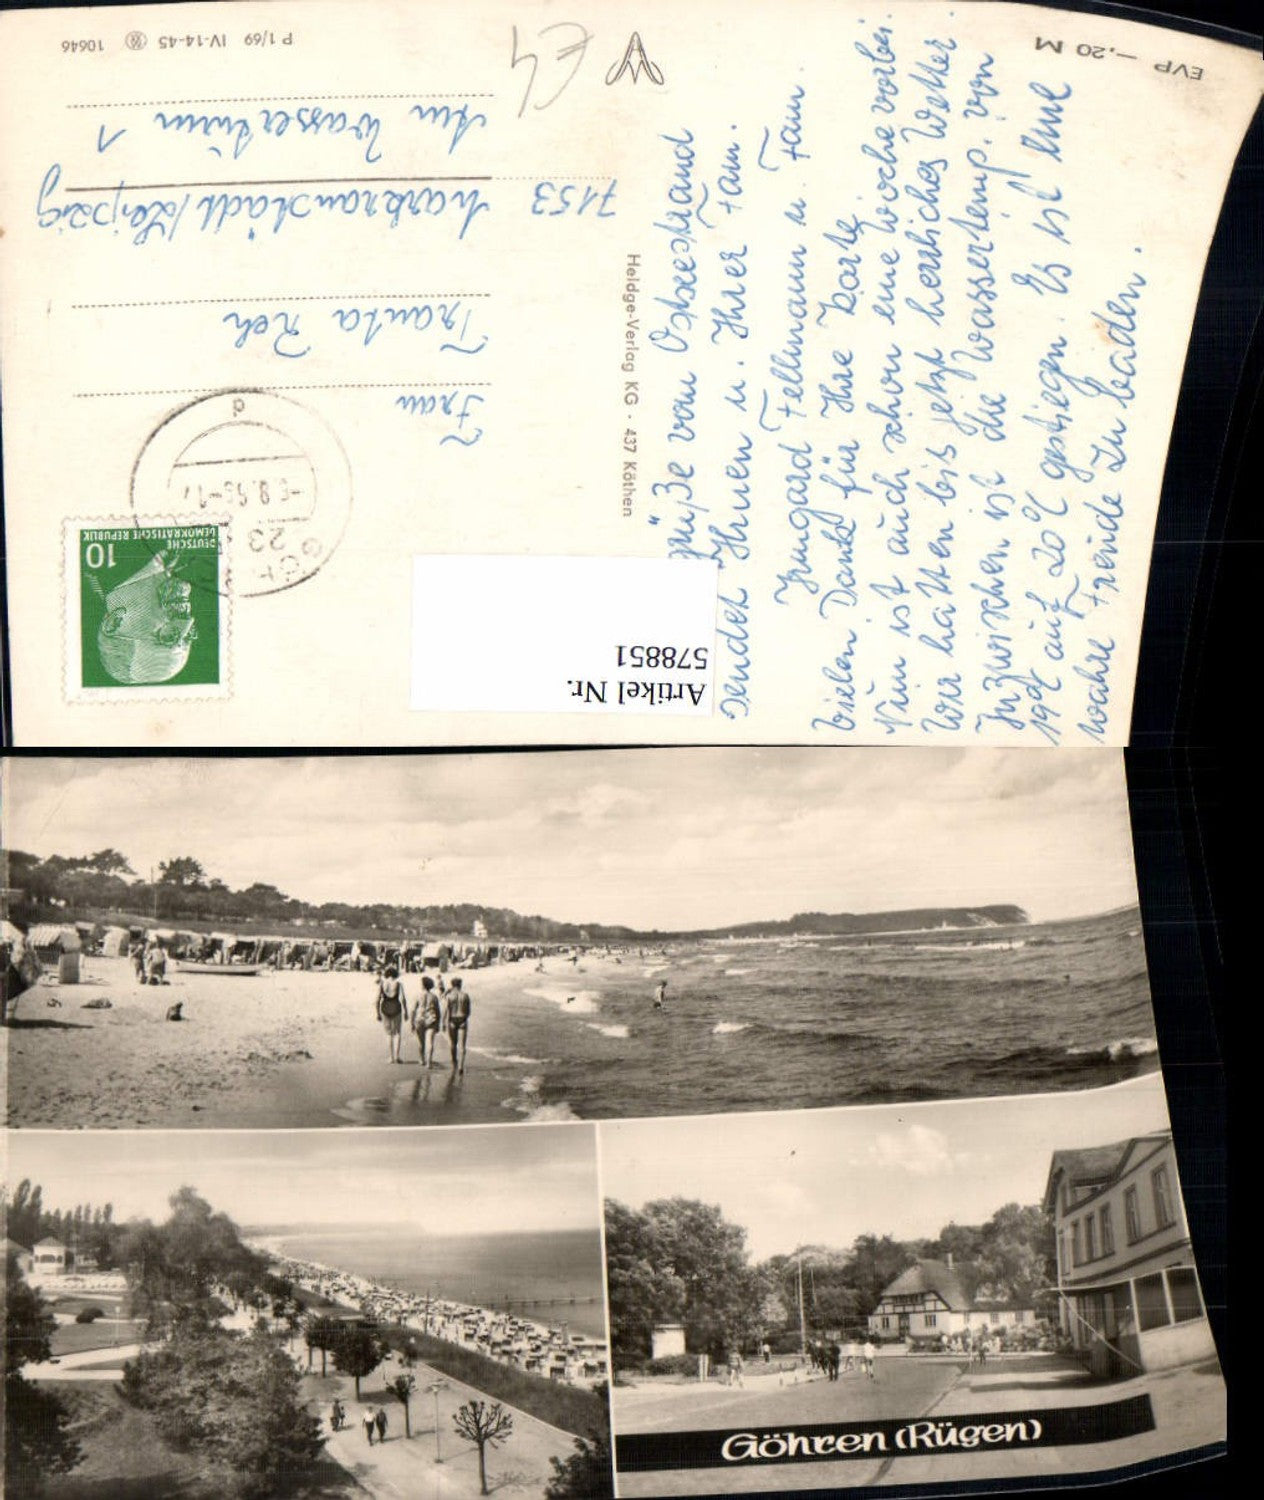 EVP –,20 M
P 1/69 IV-14-45 10646
E4
Heldge-Verlag KG · 437 Köthen
DEUTSCHE
DEMOKRATISCHE REPUBLIK
10
23
Frau
Trauta Reh
7153 Markranstädt/Leipzig
Am Wasserturm 1
Grüße vom Ostseestrand
sendet Ihnen u. Ihrer Fam.
Irmgard Fellmann u. Fam.
Vielen Dank für Ihre Karte
Nun ist auch schon eine Woche vorbei.
Wir hatten bis jetzt herrliches Wetter.
Inzwischen ist die Wassertemp. von
19° auf 20°C gestiegen. Es ist eine
wahre Freude zu baden.
Artikel Nr.
578851
Göhren (Rügen)